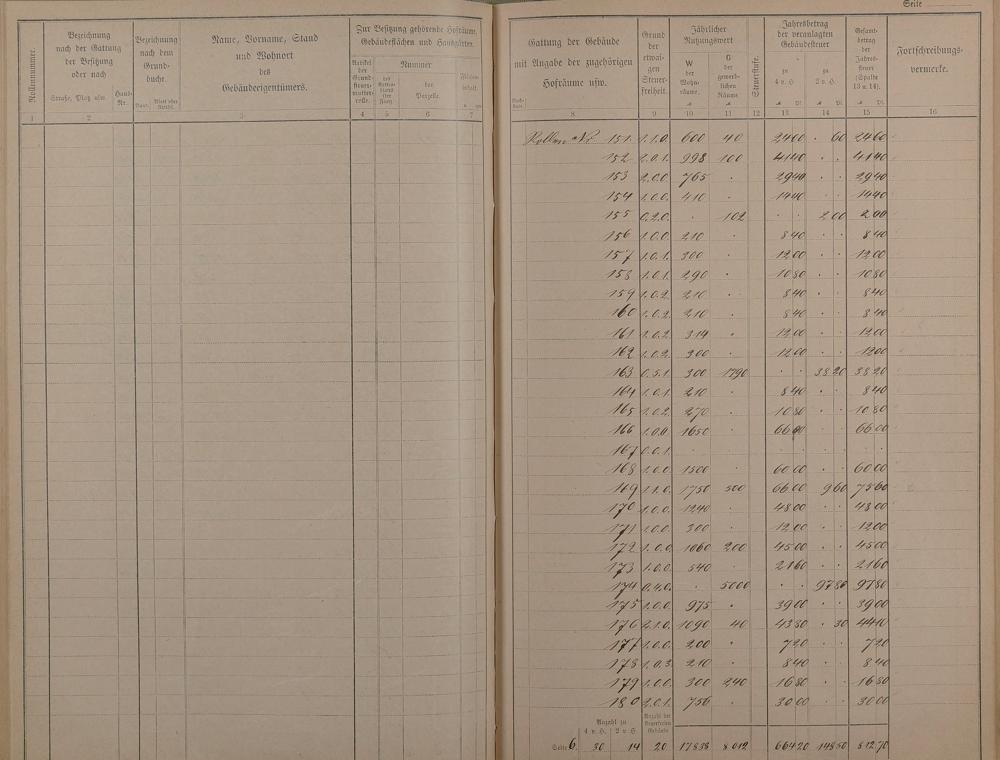 Seite
Rollennummer.
Bezeichnung
nach der Gattung
der Besitzung
oder nach
Straße, Platz usw.
Haus-
Nr.
Bezeichnung
nach dem
Grund-
buche.
Band.
Name, Vorname, Stand
und Wohnort
des
Gebäudeeigentümers.
Zur Besitzung gehörende Hofräume,
Gebäudeflächen und Hausgärten.
Artikel
der
Grund-
steuer-
mutter-
rolle.
Nummer
der
Parzelle.
Flächen-
inhalt.
Gattung der Gebäude
mit Angabe der zugehörigen
Hofräume usw.
Grund
der
etwai-
gen
Steuer-
freiheit.
Jährlicher
Nutzungswert
W
der
Wohn-
räume.
G
der
gewerb-
lichen
Räume
Steuerstufe.
Jahresbetrag
der veranlagten
Gebäudesteuer
zu
4 v. H.
zu
2 v. H.
Gesamt-
betrag
der
Jahres-
steuer
(Spalte
13 u. 14).
Fortschreibungs-
vermerke.
1 2 3 4 5 6 7 8 9 10 11 12 13 14 15 16
151 1.1.0. 600 40 2400 . 60 2460
152 2.0.1. 998 100 4140 . . 4140
153 2.0.0 765 . 2940 . . 2940
154 1.0.0. 410 . 1440 . . 1440
155 0.2.0. . 102 . . 2 00 2 00
156 1.0.0. 210 . 8 40 . . 8 40
157 1.0.1. 300 . 12 00 . . 12 00
158 1.0.1. 290 . 10 80 . . 10 80
159 1.0.2. 210 . 8 40 . . 8 40
160 1.0.2. 210 . 8 40 . . 8 40
161 1.0.2. 314 . 12 00 . . 12 00
162 1.0.2. 300 . 12 00 . . 12 00
163 0.5.1. 300 1790 . . 38 20 38 20
164 1.0.1. 210 . 8 40 . . 8 40
165 1.0.2. 270 . 10 80 . . 10 80
166 1.0.0. 1650 . 66 00 . . 66 00
167 0.0.1.
168 1.0.0. 1500 . 60 00 . . 60 00
169 1.1.0. 1750 500 66 00 9 60 75 60
170 1.0.0. 1240 . 48 00 . . 48 00
171 1.0.0. 300 . 12 00 . . 12 00
172 1.0.0. 1060 200 45 00 . . 45 00
173 1.0.0. 540 . 21 60 . . 21 60
174 0.4.0. . 5000 . . 97 80 97 80
175 1.0.0. 975 . 39 00 . . 39 00
176 2.1.0. 1090 40 43 80 . 30 44 10
177 1.0.0. 200 . 7 20 . . 7 20
178 1.0.3. 210 . 8 40 . . 8 40
179 1.0.0. 300 240 16 80 . . 16 80
180 2.0.1. 756 . 30 00 . . 30 00
Anzahl zu
4 v. H. 2 v. H.
Anzahl der
steuerfreien
Gebäude
Seite 6. 30 14 20 17838 8012 664 20 148 50 812 70